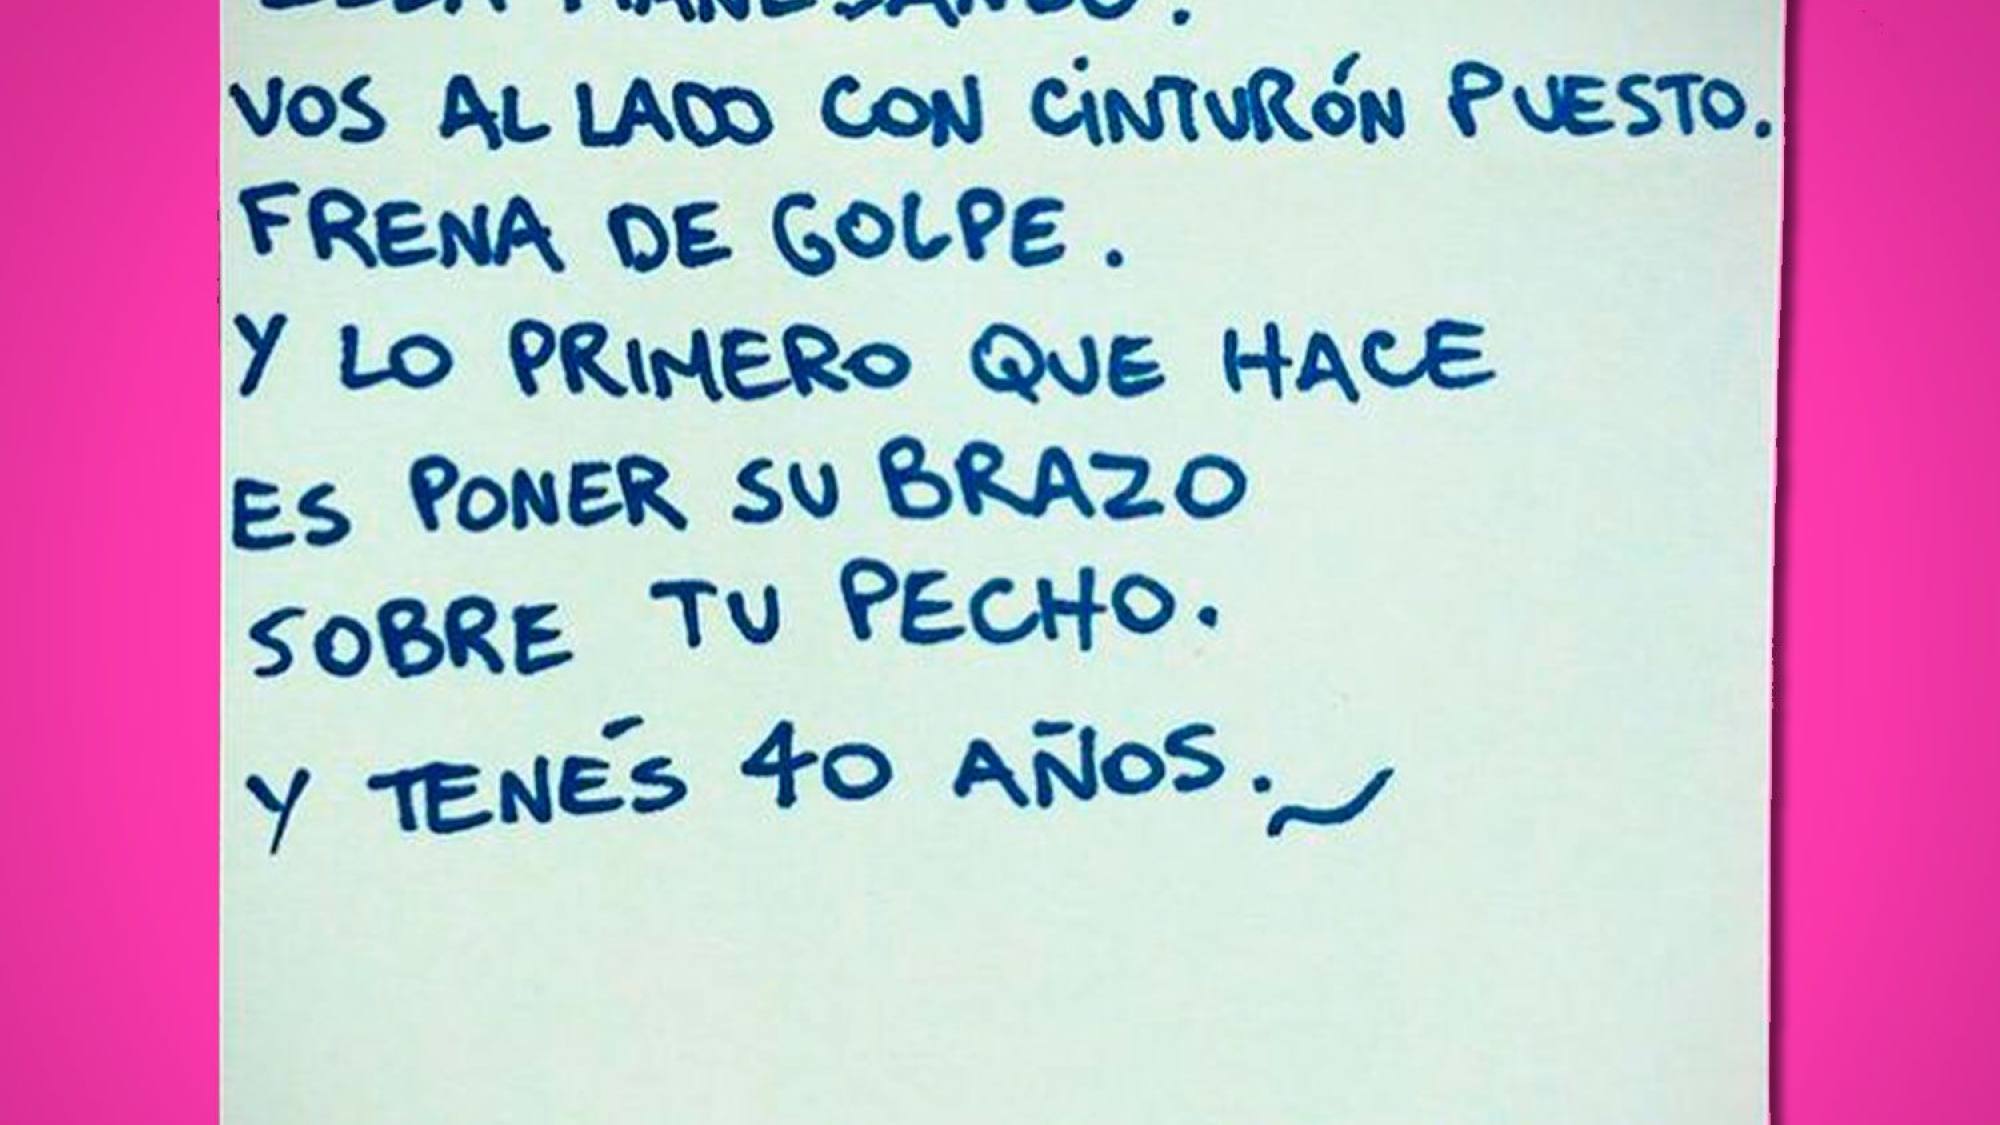 ELLA MANEJANDO.
VOS AL LADO CON CINTURÓN PUESTO.
FRENA DE GOLPE.
Y LO PRIMERO QUE HACE
ES PONER SU BRAZO
SOBRE TU PECHO.
Y TENÉS 40 AÑOS.